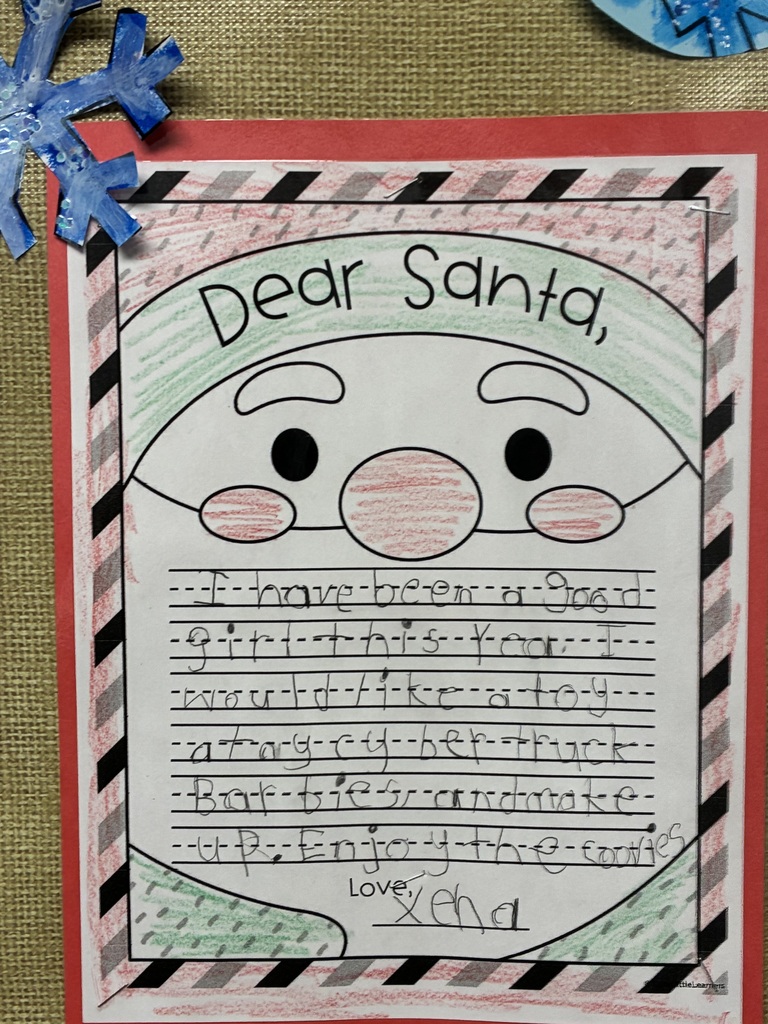 Dear Santa,
I have been a good
girl this Year. I
would like a toy
a tay cyber truck
Barbies, and make
up. Enjoy the cookies
Love,
Xena